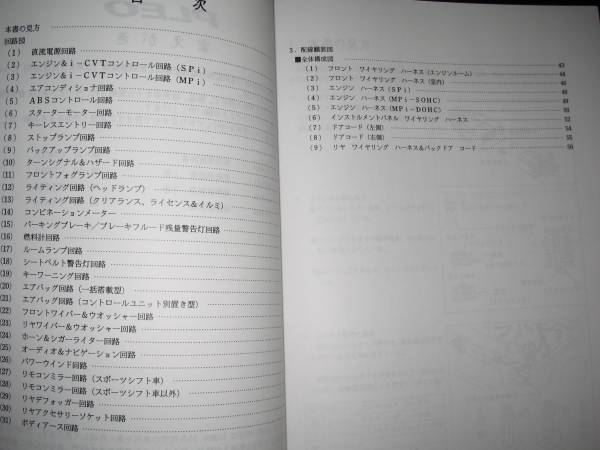 目　次
本書の見方
回路図
(1) 直流電源回路
(2) エンジン＆i－CVTコントロール回路（SPi）
(3) エンジン＆i－CVTコントロール回路（MPi）
(4) エアコンディショナ回路
(5) ABSコントロール回路
(6) スターターモーター回路
(7) キーレスエントリー回路
(8) ストップランプ回路
(9) バックアップランプ回路
(10) ターンシグナル＆ハザード回路
(11) フロントフォグランプ回路
(12) ライティング回路（ヘッドランプ）
(13) ライティング回路（クリアランス、ライセンス＆イルミ）
(14) コンビネーションメーター
(15) パーキングブレーキ／ブレーキフルード残量警告灯回路
(16) 燃料計回路
(17) ルームランプ回路
(18) シートベルト警告灯回路
(19) キーワーニング回路
(20) エアバッグ回路（一括搭載型）
(21) エアバッグ回路（コントロールユニット別置き型）
(22) フロントワイパー＆ウオッシャー回路
(23) リヤワイパー＆ウオッシャー回路
(24) ホーン＆シガーライター回路
(25) オーディオ＆ナビゲーション回路
(26) パワーウインド回路
(27) リモコンミラー回路（スポーツシフト車）
(28) リモコンミラー回路（スポーツシフト車以外）
(29) リヤデフォッガー回路
(30) リヤアクセサリーソケット回路
(31) ボディアース回路
3．配線艤装図
■全体構成図
(1) フロント　ワイヤリング　ハーネス（エンジンルーム） 43
(2) フロント　ワイヤリング　ハーネス（室内）
(3) エンジン　ハーネス（SPi） 48
(4) エンジン　ハーネス（MPi－SOHC） 49
(5) エンジン　ハーネス（MPi－DOHC） 50
(6) インストルメントパネル　ワイヤリング　ハーネス 52
(7) ドアコード（左側） 54
(8) ドアコード（右側） 55
(9) リヤ　ワイヤリング　ハーネス＆バックドア　コード 56